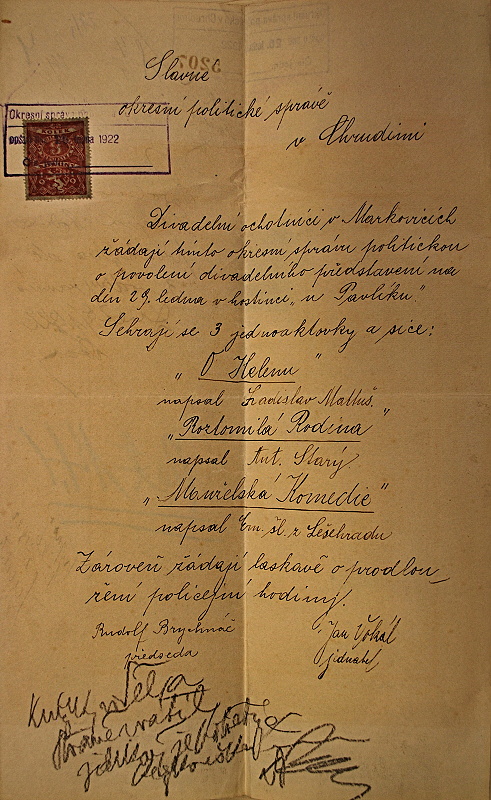 Slavné
okresní politické správě
v Chrudimi
Okresní správ
1922
Divadelní ochotníci v Markovicích
žádají tímto okresní správu politickou
o povolení divadelního představení na
den 29. ledna v hostinci „u Pavlíků."
Sehrají se 3 jednoaktovky a sice:
„O Helenu"
napsal Ladislav Mattuš.
„Roztomilá Rodina"
napsal Ant. Starý
„Manželská Komedie"
napsal Em. šl. z Lešehradu
Zároveň žádají laskavě o prodlou_
žení policejní hodiny.
Rudolf Brychnáč
předseda
Jan Vokál
jednatel